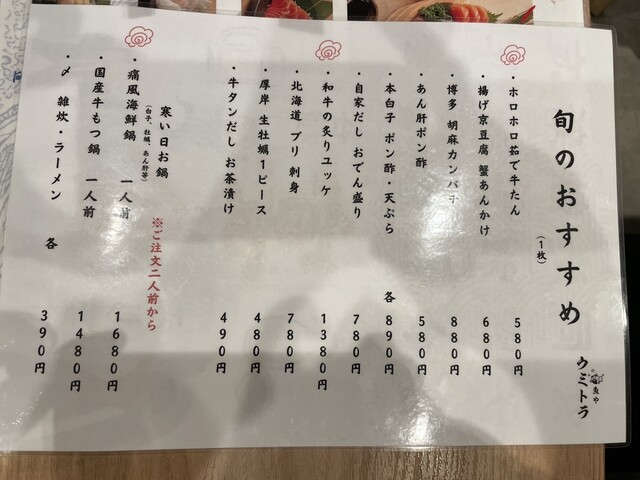 旬のおすすめ
魚や
ウミトラ
・ホロホロ茹で牛たん (1枚) 580円
・揚げ京豆腐 蟹あんかけ 680円
・博多 胡麻カンパチ 880円
・あん肝ポン酢 580円
・本白子 ポン酢・天ぷら 各890円
・自家だし おでん盛り 780円
・和牛の炙りユッケ 1380円
・北海道 ブリ 刺身 780円
・厚岸 生牡蠣1ピース 480円
・牛タンだし お茶漬け 490円
寒い日お鍋 ※ご注文二人前から
(白子、牡蠣、あん肝等)
・痛風海鮮鍋 一人前 1680円
・国産牛もつ鍋 一人前 1480円
・〆 雑炊・ラーメン 各 390円